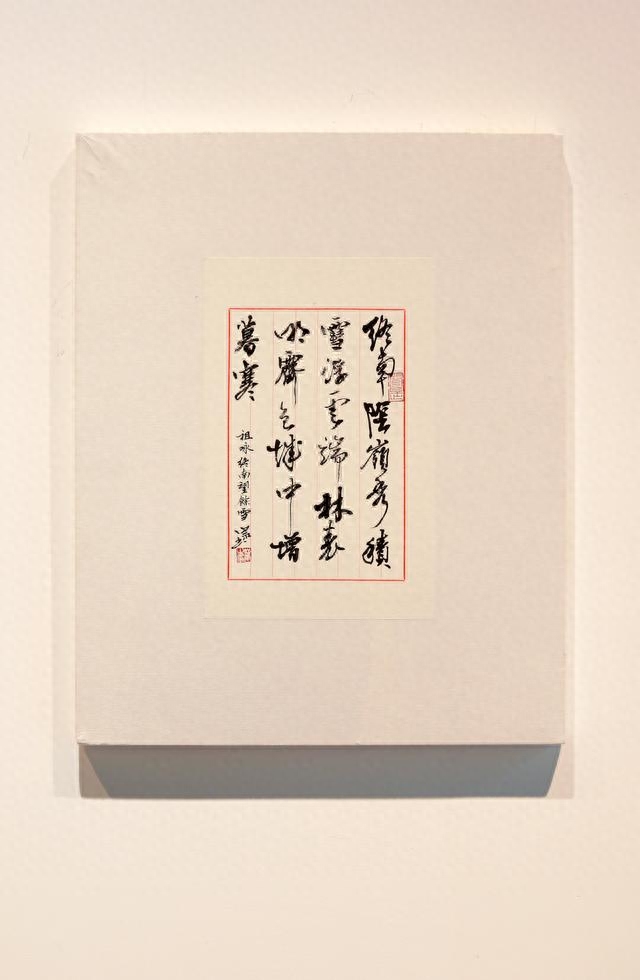 終南陰嶺秀積
雪浮云端林表
明霽色城中增
暮寒
祖咏終南望餘雪